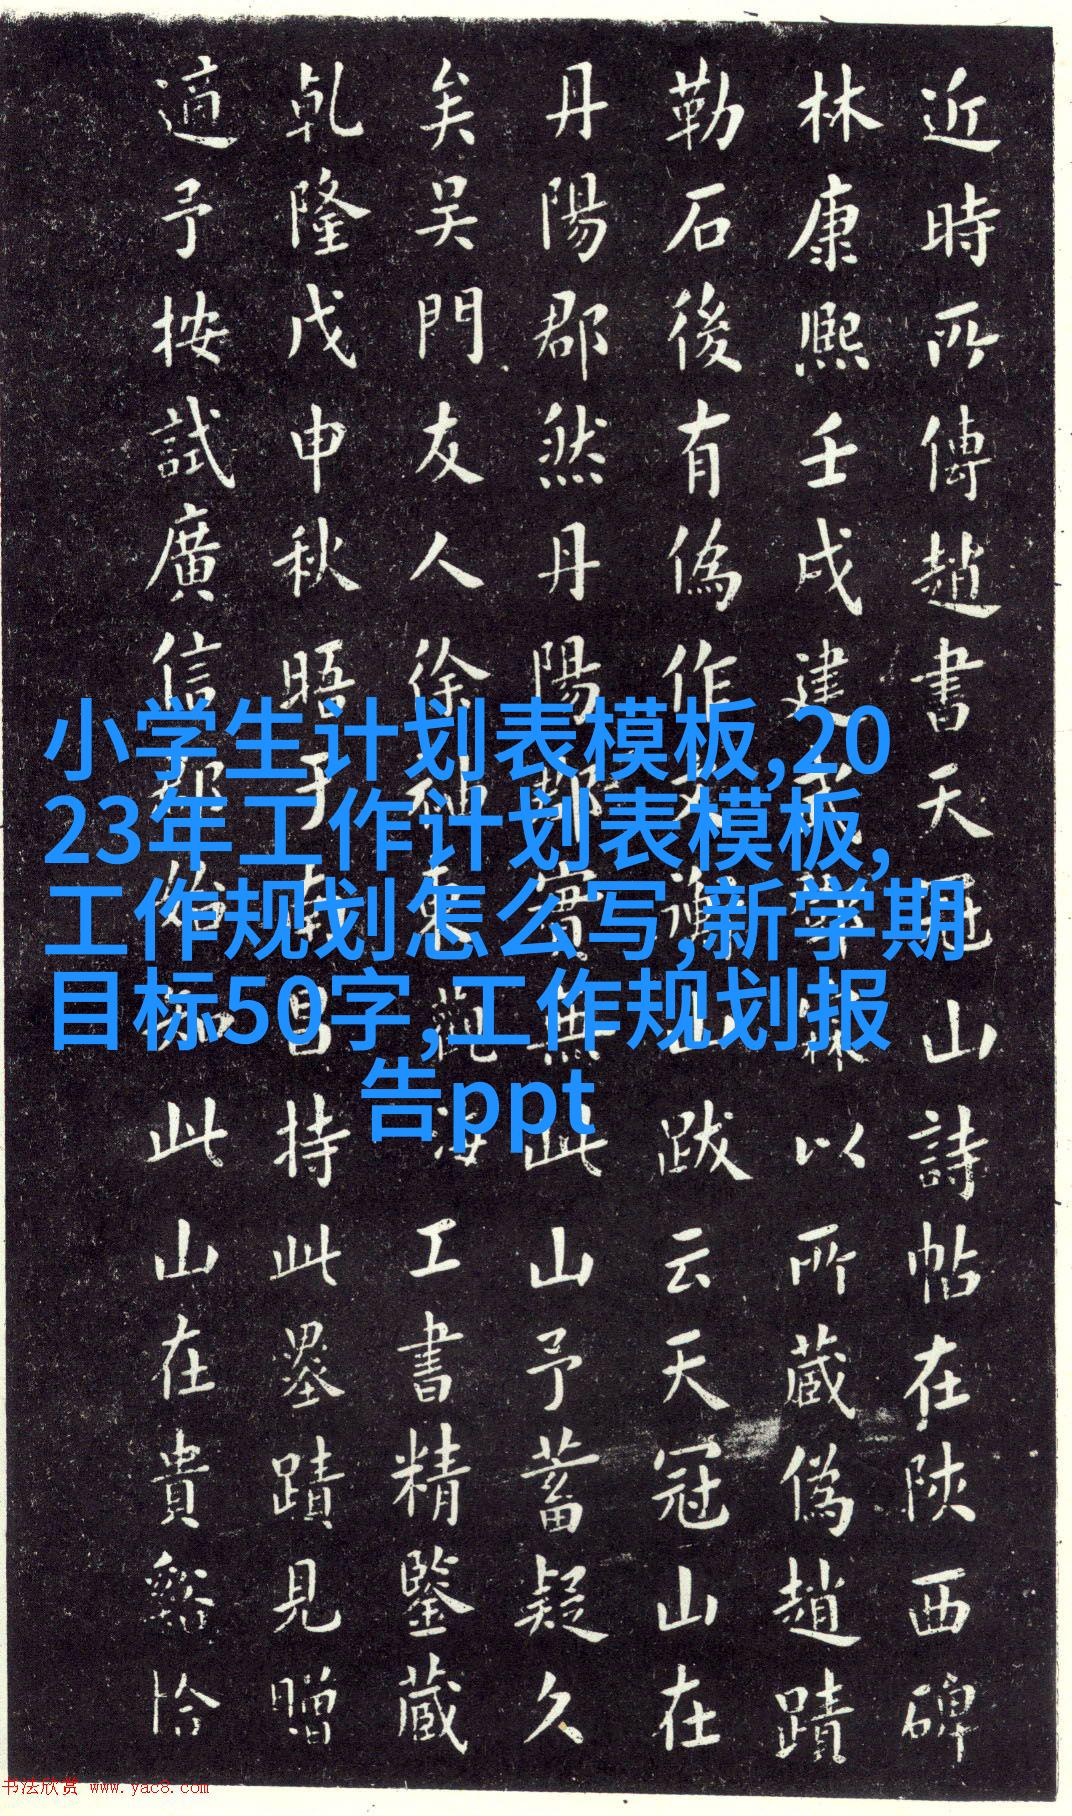 近時所傳趙書天冠山詩帖在陝西碑
林康熙壬戌建以所藏偽趙蹟
勒石後有偽作山跋云天冠山在
丹陽郡然丹陽郡實無此山予蓄疑久
矣吴門友人徐工書精鑒藏
乾隆戊申秋晤于南昌持此墨蹟見贈
適予按試廣信郡始知此山在貴谿恰
小学生计划表模板,20
23年工作计划表模板,
工作规划怎么写,新学期
目标50字,工作规划报
告ppt
书法欣赏 www.yac8.com